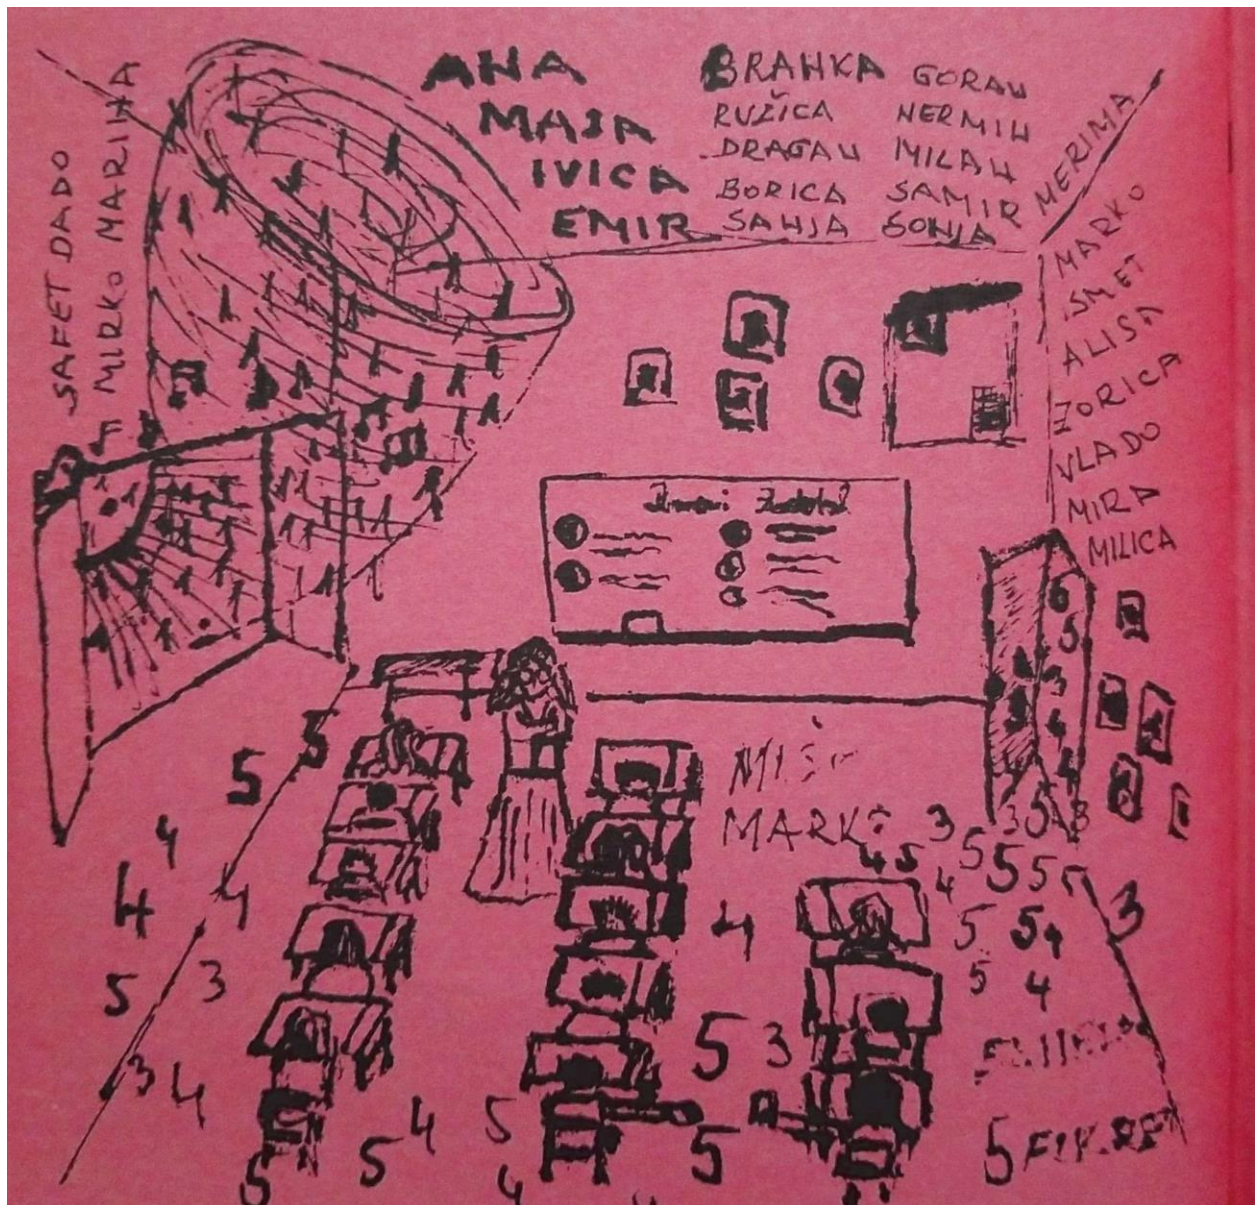 SAFET DADO
MIRKO MARINA
ANA
MAJA
IVICA
EMIR
BRANKA
RUŽICA
DRAGAN
BORICA
SANJA
GORAN
NERMIN
MILAN
SAMIR
SONJA
MERIMA
MARKO
ISMET
ALISA
ZORICA
VLADO
MIRA
MILICA
6
5
3
4
5
5
4
4
4
5
3
3 4
MARKO
3
5
3 5
4 5
4
5 5
3
4
5
5 4
5
4
5 3
5
4
5
5
5
5
4
5